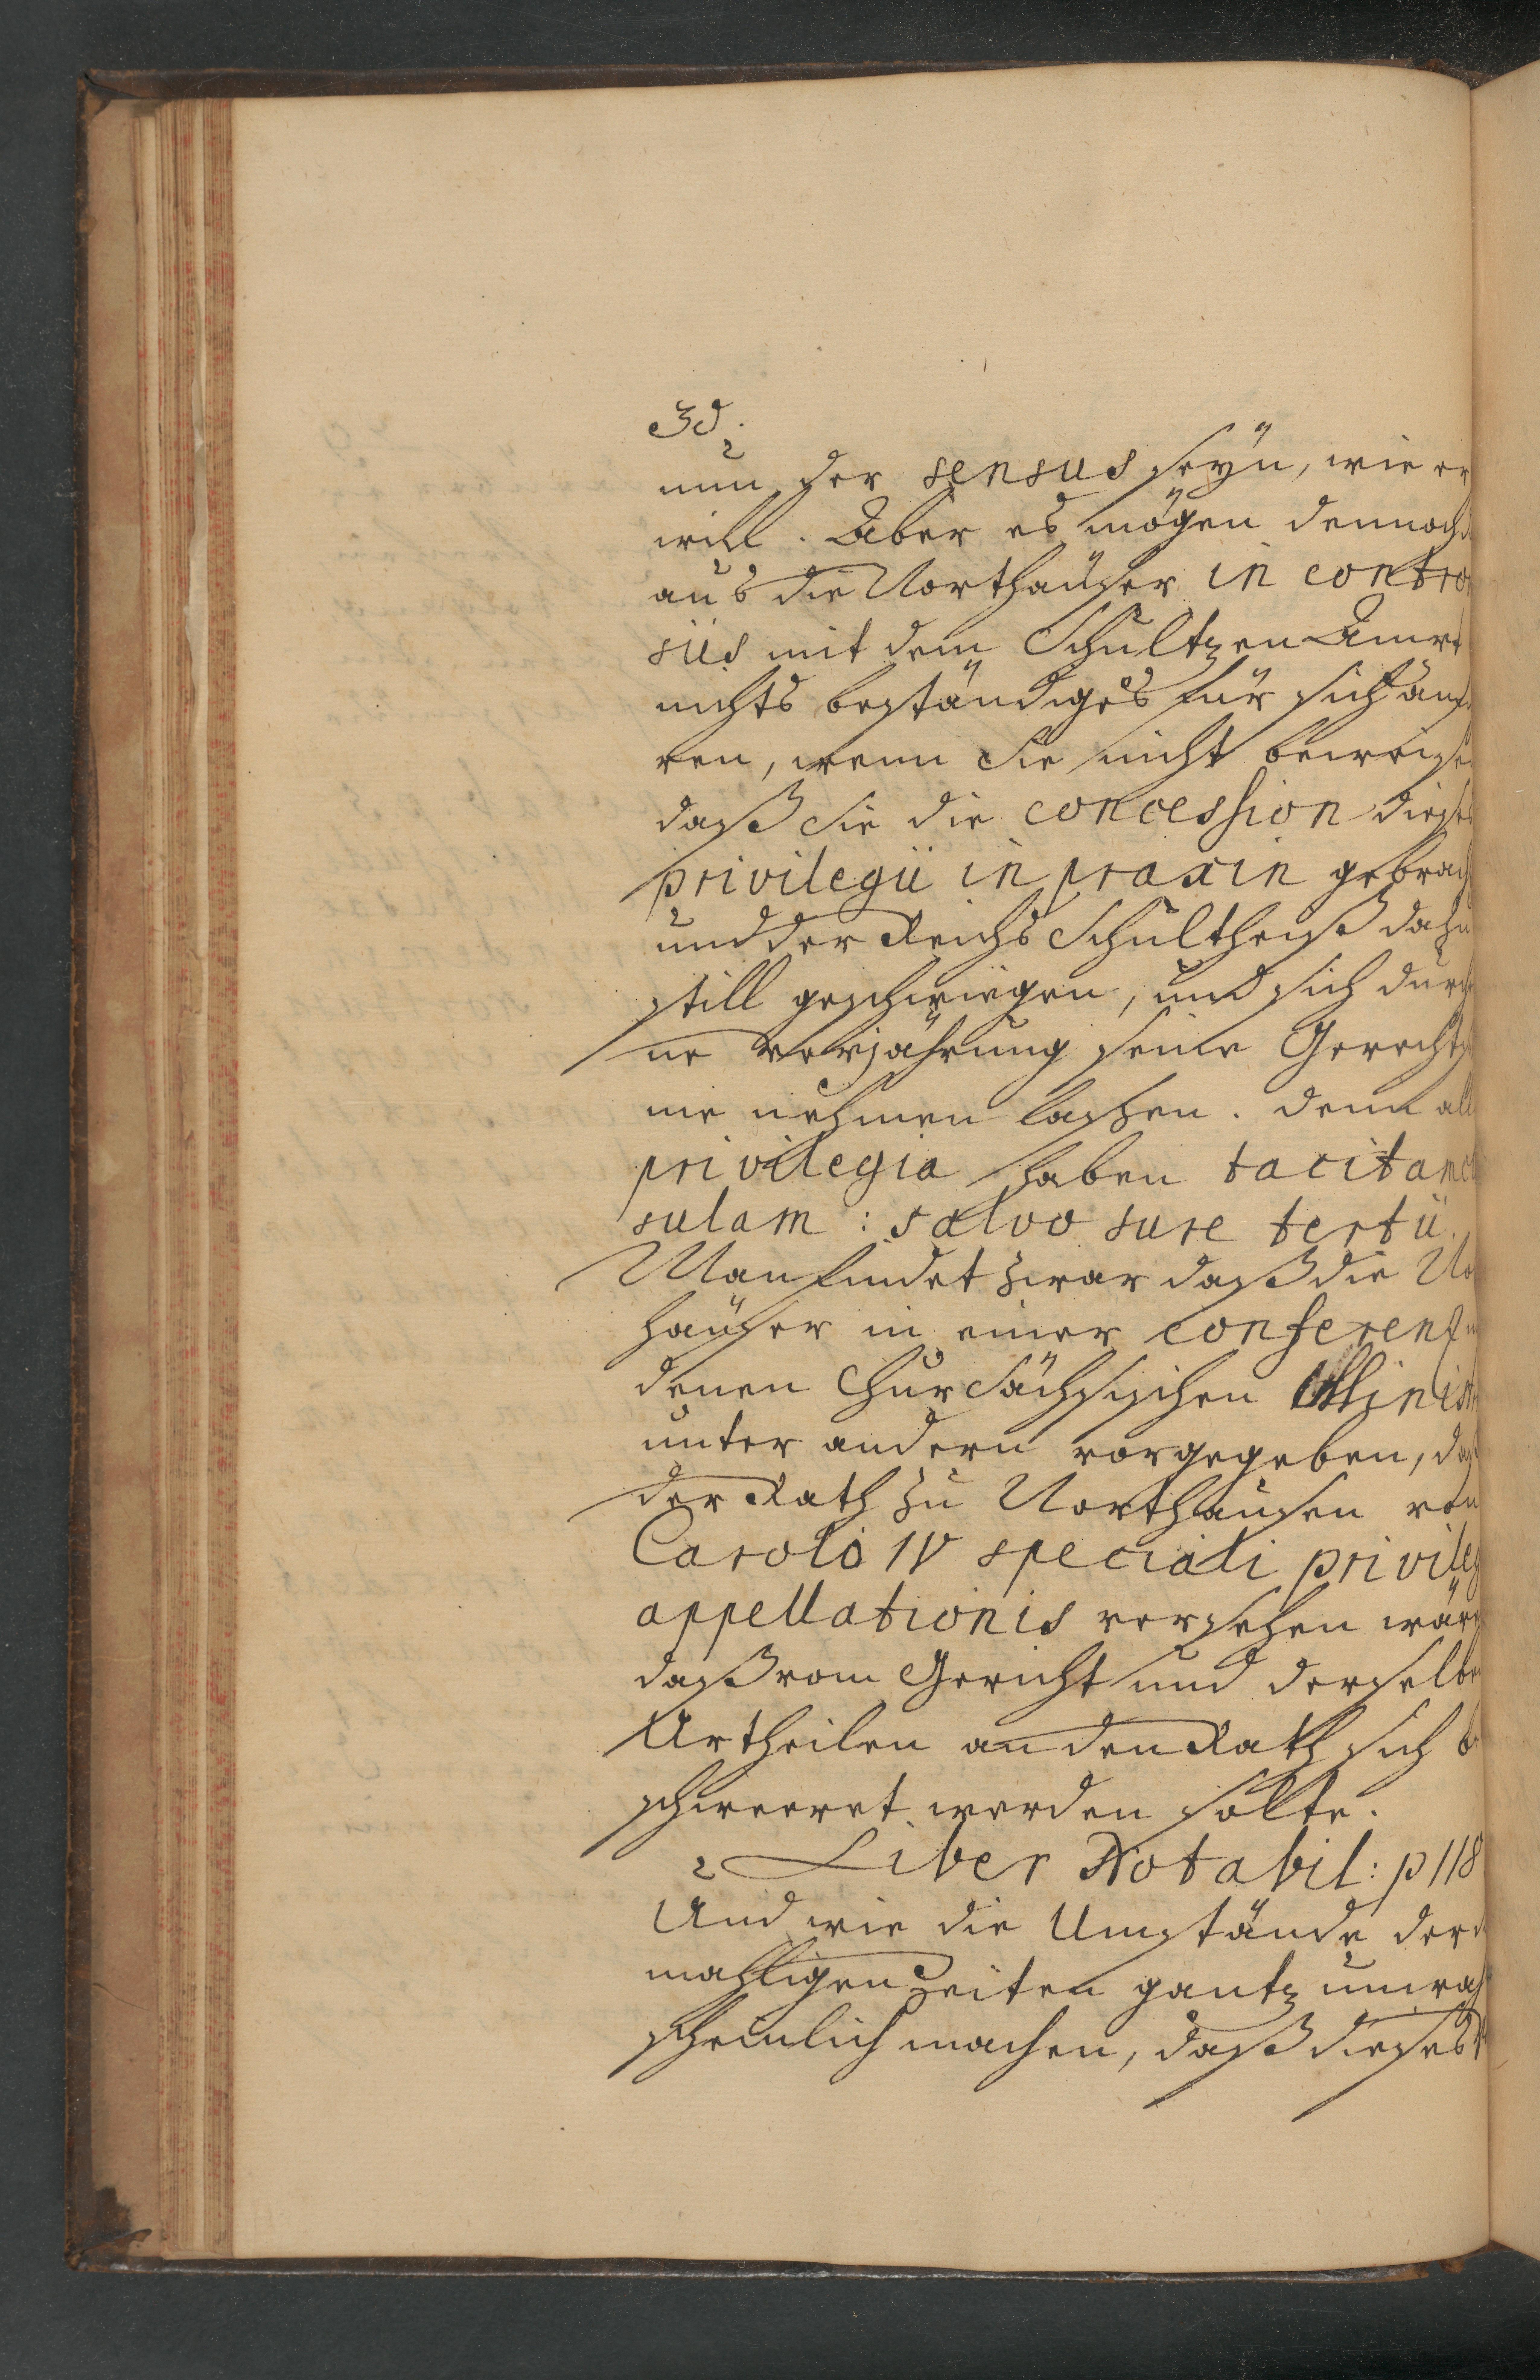 30.
nun der sensus seyn, wie er
will. Aber es mögen dennoch
aus die Northaüser in contro
siis mit dem Schultzen Ammt
nichts beständiges für sich anfü
ren, wenn Sie nicht beweisen
daß Sie die concession dieses
privilegii in praxin gebrach
und der Reichs Schultheiß dazu
still geschwiegen, und sich durch
ne verjährung seine Gerechtsa
me nehmen lassen. denn alle
privilegia haben tacitam cl
sulam: salvo jure tertii.
Man findet zwar daß die No
haüser in einer conferentz
denen Chur Sächsischen Minist
unter andern vorgegeben, daß
der Rath zu Northausen von
Carolo IV speciali privileg
appellationis versehen wäre
daß vom Gericht und derselben
Urtheilen an den Rath sich b
schweeret werden solte.
Liber Notabil: p 118
Und wie die Umstände der d
mahligen Zeiten gantz unwah
scheinlich machen, daß dieses